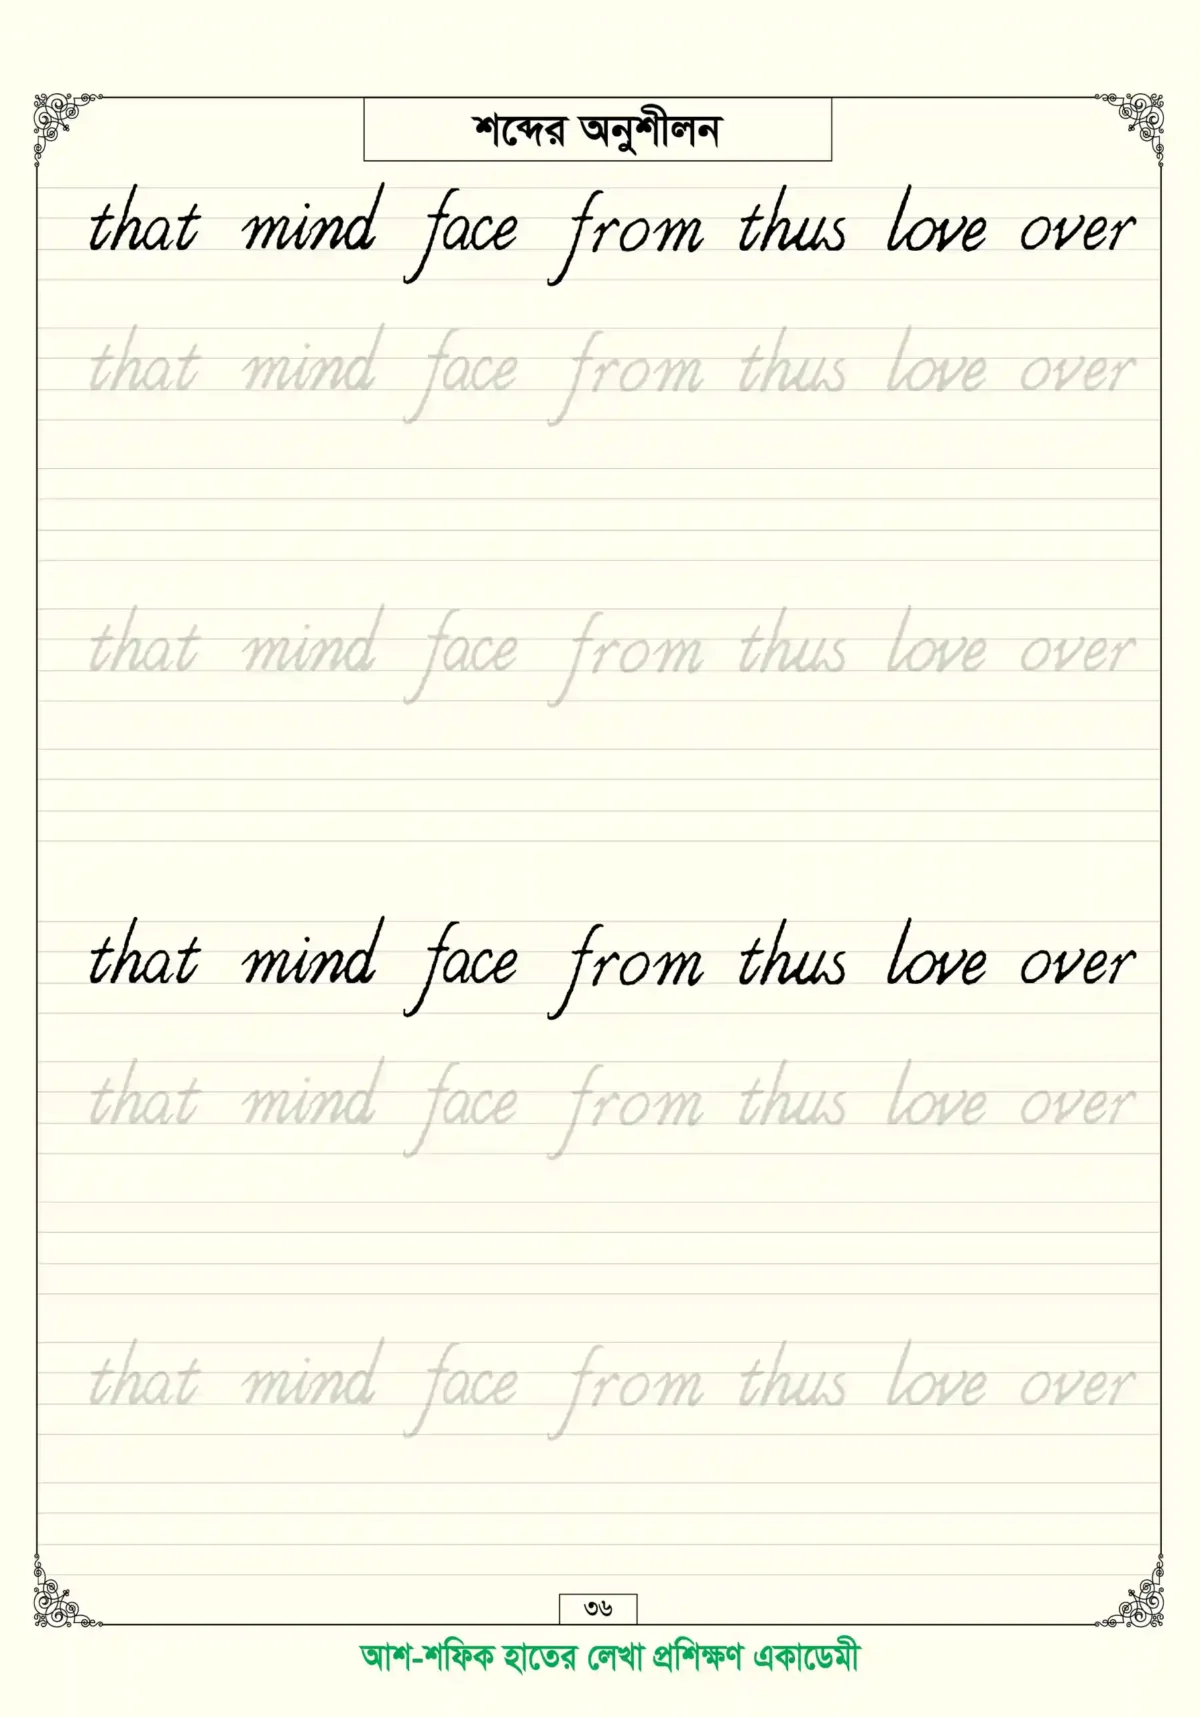 শব্দের অনুশীলন
that mind face from thus love over
that mind face from thus love over
that mind face from thus love over
that mind face from thus love over
that mind face from thus love over
that mind face from thus love over
৩৬
আশ-শফিক হাতের লেখা প্রশিক্ষণ একাডেমী